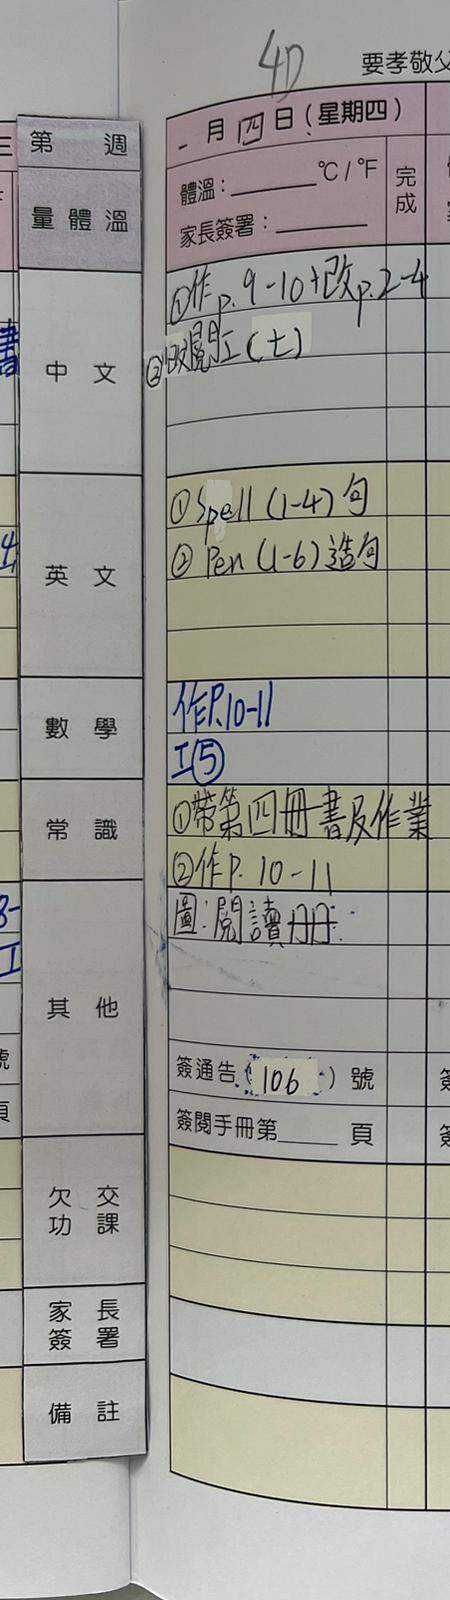 4D
要孝敬父
第 週
一月四日(星期四)
量體溫
體溫：______°C/°F
完成
家長簽署：______
中文
①作p.9-10+改p.2-4
②改閱工(七)
英文
①Spell (1-4) 句
②Pen (1-6) 造句
數學
作P.10-11
工⑤
常識
①帶第四冊書及作業
②作P. 10-11
其他
圖:閱讀冊
簽通告(106)號
簽閱手冊第_____頁
欠交功課
家長簽署
備註